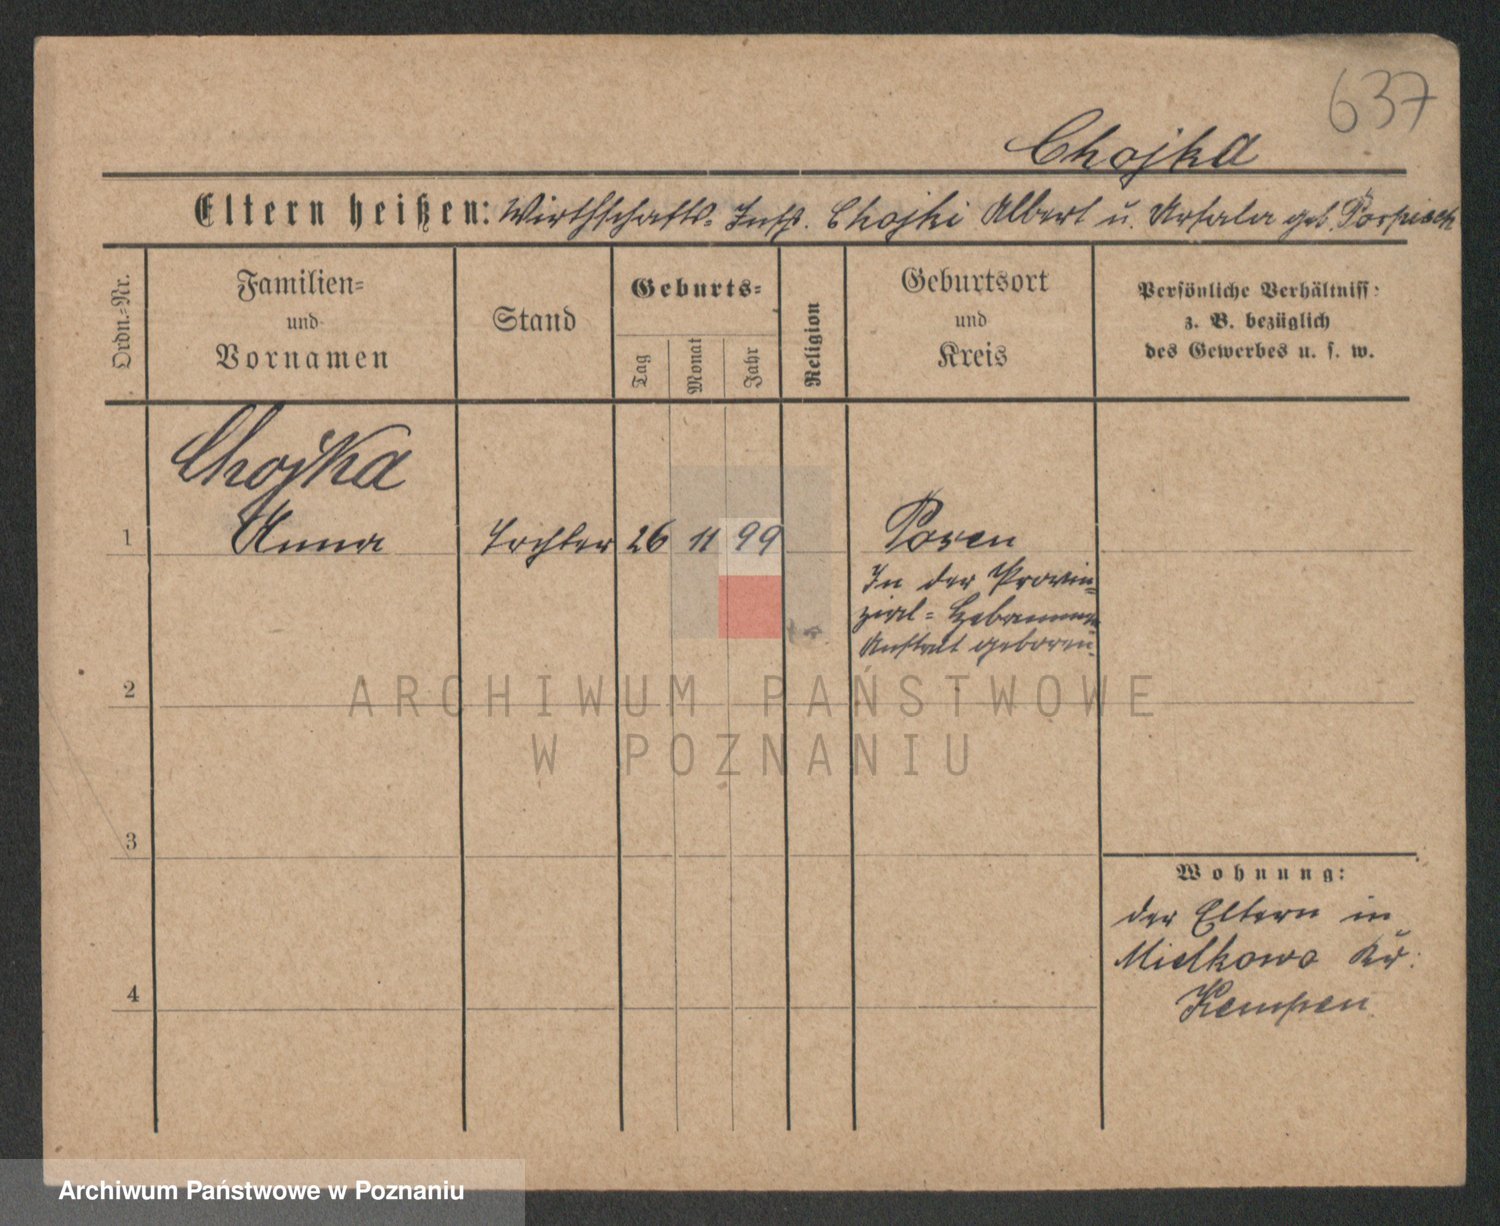 637
Chojka
Eltern heißen: Wirthschafts-Insp. Chojki Albert u. Ursula geb. Pospiech
Ordn.-Nr.
Familien-
und
Vornamen
Stand
Geburts-
Tag
Monat
Jahr
Religion
Geburtsort
und
Kreis
Persönliche Verhältniss-
z. B. bezüglich
des Gewerbes u. s. w.
Chojka
1 Anna Tochter 26 11 99 Posen
In der Provin-
zial-Hebammen
Anstalt geboren.
2
ARCHIWUM PAŃSTWOWE
W POZNANIU
3
Wohnung:
der Eltern in
Mielkowo Kr.
4
Kempen
Archiwum Państwowe w Poznaniu